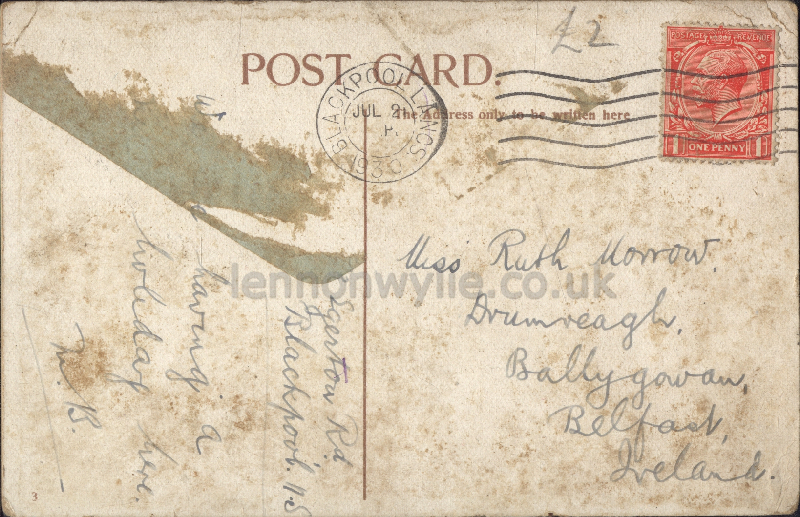 £2
POST CARD.
The Address only to be written here
BLACKPOOL. LANCS
JUL 2
P.
1930
POSTAGE REVENUE
ONE PENNY
1
1
Miss Ruth Morrow.
Drumreagh,
Ballygowan,
Belfast,
Ireland.
gerton Rd
Blackpool. N.S
having a
holiday here.
M. B.
3
lennonwylie.co.uk